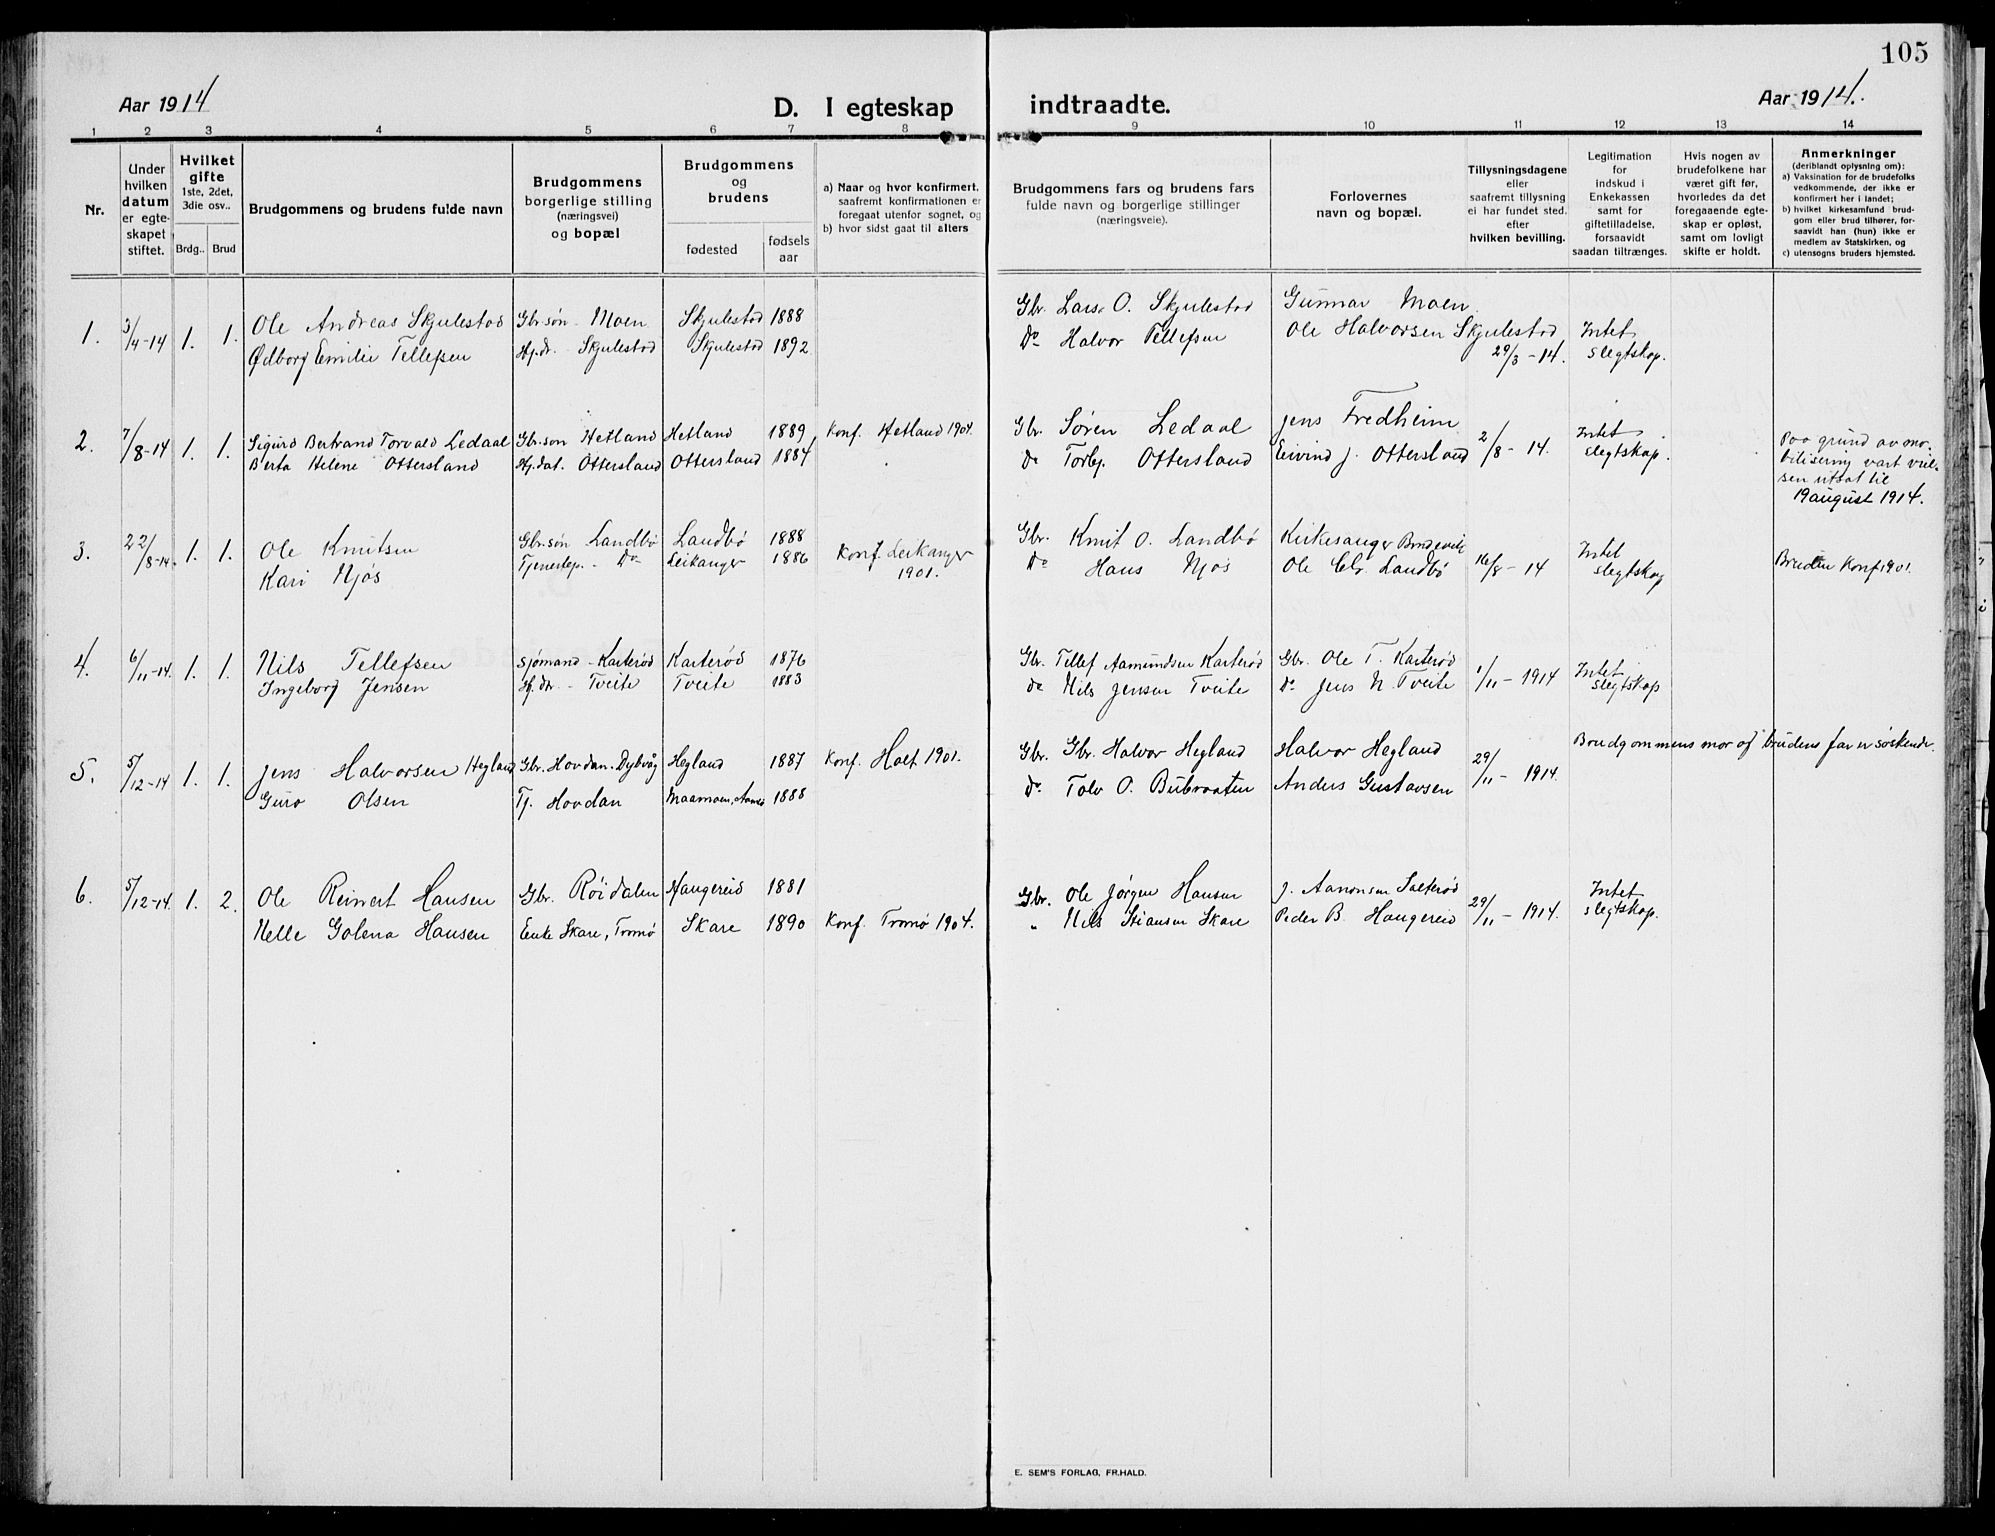 105
Aar 1914
D. I egteskap indtraadte.
Aar 1914.
1 2 3 4 5 6 7 8 9 10 11 12 13 14
Nr.
Under
hvilken
datum
er egte-
skapet
stiftet.
Hvilket
gifte
1ste, 2det,
3die osv..
Brdg.. Brud
Brudgommens og brudens fulde navn
Brudgommens
borgerlige stilling
(næringsvei)
og bopæl
Brudgommens
og
brudens
fødested
fødsels
aar
a) Naar og hvor konfirmert,
saafremt konfirmationen er
foregaat utenfor sognet, og
b) hvor sidst gaat til alters
Brudgommens fars og brudens fars
fulde navn og borgerlige stillinger
(næringsveie).
Forlovernes
navn og bopæl.
Tillysningsdagene
eller
saafremt tillysning
ei har fundet sted.
efter
hvilken bevilling.
Legitimation
for
indskud i
Enkekassen
samt for
giftetilladelse,
forsaavidt
saadan tiltrænges.
Hvis nogen av
brudefolkene har
været gift før,
hvorledes da det
foregaaende egte-
skap er opløst,
samt om lovligt
skifte er holdt.
Anmerkninger
(deriblandt oplysning om):
a) Vaksination for de brudefolks
vedkommende, der ikke er
konfirmert her i landet;
b) hvilket kirkesamfund brud-
gom eller brud tilhører, for-
saavidt han (hun) ikke er
medlem av Statskirken, og
c) utensogns bruders hjemsted.
1. 3/4-14 1. 1. Ole Andreas Skjulestad Gbr.søn - Moen Skjulestad 1888 Gbr. Lars O. Skjulestad Gunnar Moen
Ødborg Emilie Tellefsen Hj.dr. - Skjulestad Skjulestad 1892 Do Halvor Tellefsen Ole Halvorsen Skjulestad 29/3-14. Intet slegtskap.
2. 7/8-14 1. 1. Sigurd Bertrand Torvald Ledaal Gbr.søn Hetland Hetland 1889 Konf. Hetland 1904. Gbr. Søren Ledaal Jens Fredheim 2/8-14. Intet slegtskap.
Berta Helene Ottersland Hj.dat. Ottersland Ottersland 1884 do Torbj. Ottersland Eivind J. Ottersland
Paa grund av mo-
bilisering vart viel-
sen utsat til
19 august 1914.
3. 22/8-14. 1. 1. Ole Knutsen Gbr.søn Landbø Landbø 1888 Gbr. Knut O. Landbø Kirkesanger
Kari Njøs Tjenestep. - Do Leikanger 1886 Konf. Leikanger 1901. Do Hans Njøs Ole Chr. Landbø 16/8-14 Intet slegtskap Bruden Konf 1901.
4. 6/11-14. 1. 1. Nils Tellefsen Sjømand - Karterød Karterød 1876 Gbr. Tellef Aamundsen Karterød Gbr. Ole T. Karterød 1/11-1914 Intet slegtskap
Ingeborg Jensen Hj.dr. - Tveite Tveite 1883 do Nils Jensen Tveite Do Jens N. Tveite
5. 5/12-14 1. 1. Jens Halvorsen Hegland Gbr. Hovdan. Dybvåg Hegland 1887 Konf. Holt 1901. Gbr. Gbr. Halvor Hegland Halvor Hegland 29/11-1914. Brudgommens mor og brudens far er søskende.
Guro Olsen Tj. Hovdan 1888 do Tolv O. Bubraaten Anders Gustavsen
6. 5/12-14. 1. 2. Ole Reinert Hansen Gbr. Røidalen Haugereid 1881 Gbr. Ole Jørgen Hansen J. Aanonsen Salterød 29/11-1914. Intet slegtskap.
Nelle Golena Hansen Enke Skare, Tromø Skare 1890 Konf. Tromø 1904. " Nils Stiansen Skare Peder B. Haugereid
E. SEM'S FORLAG, FR.HALD.